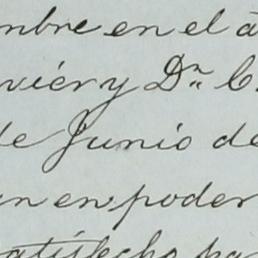 mbre en el a
viér y Dn. C.
de Junio de
an en poder
satisfecho pa